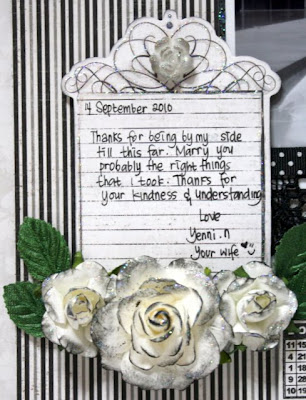 14 September 2010
Thanks for being by my side
till this far. Marry you
probably the right things
that i took. Thanks for
your kindness & understanding
Love
Yenni.n
Your wife